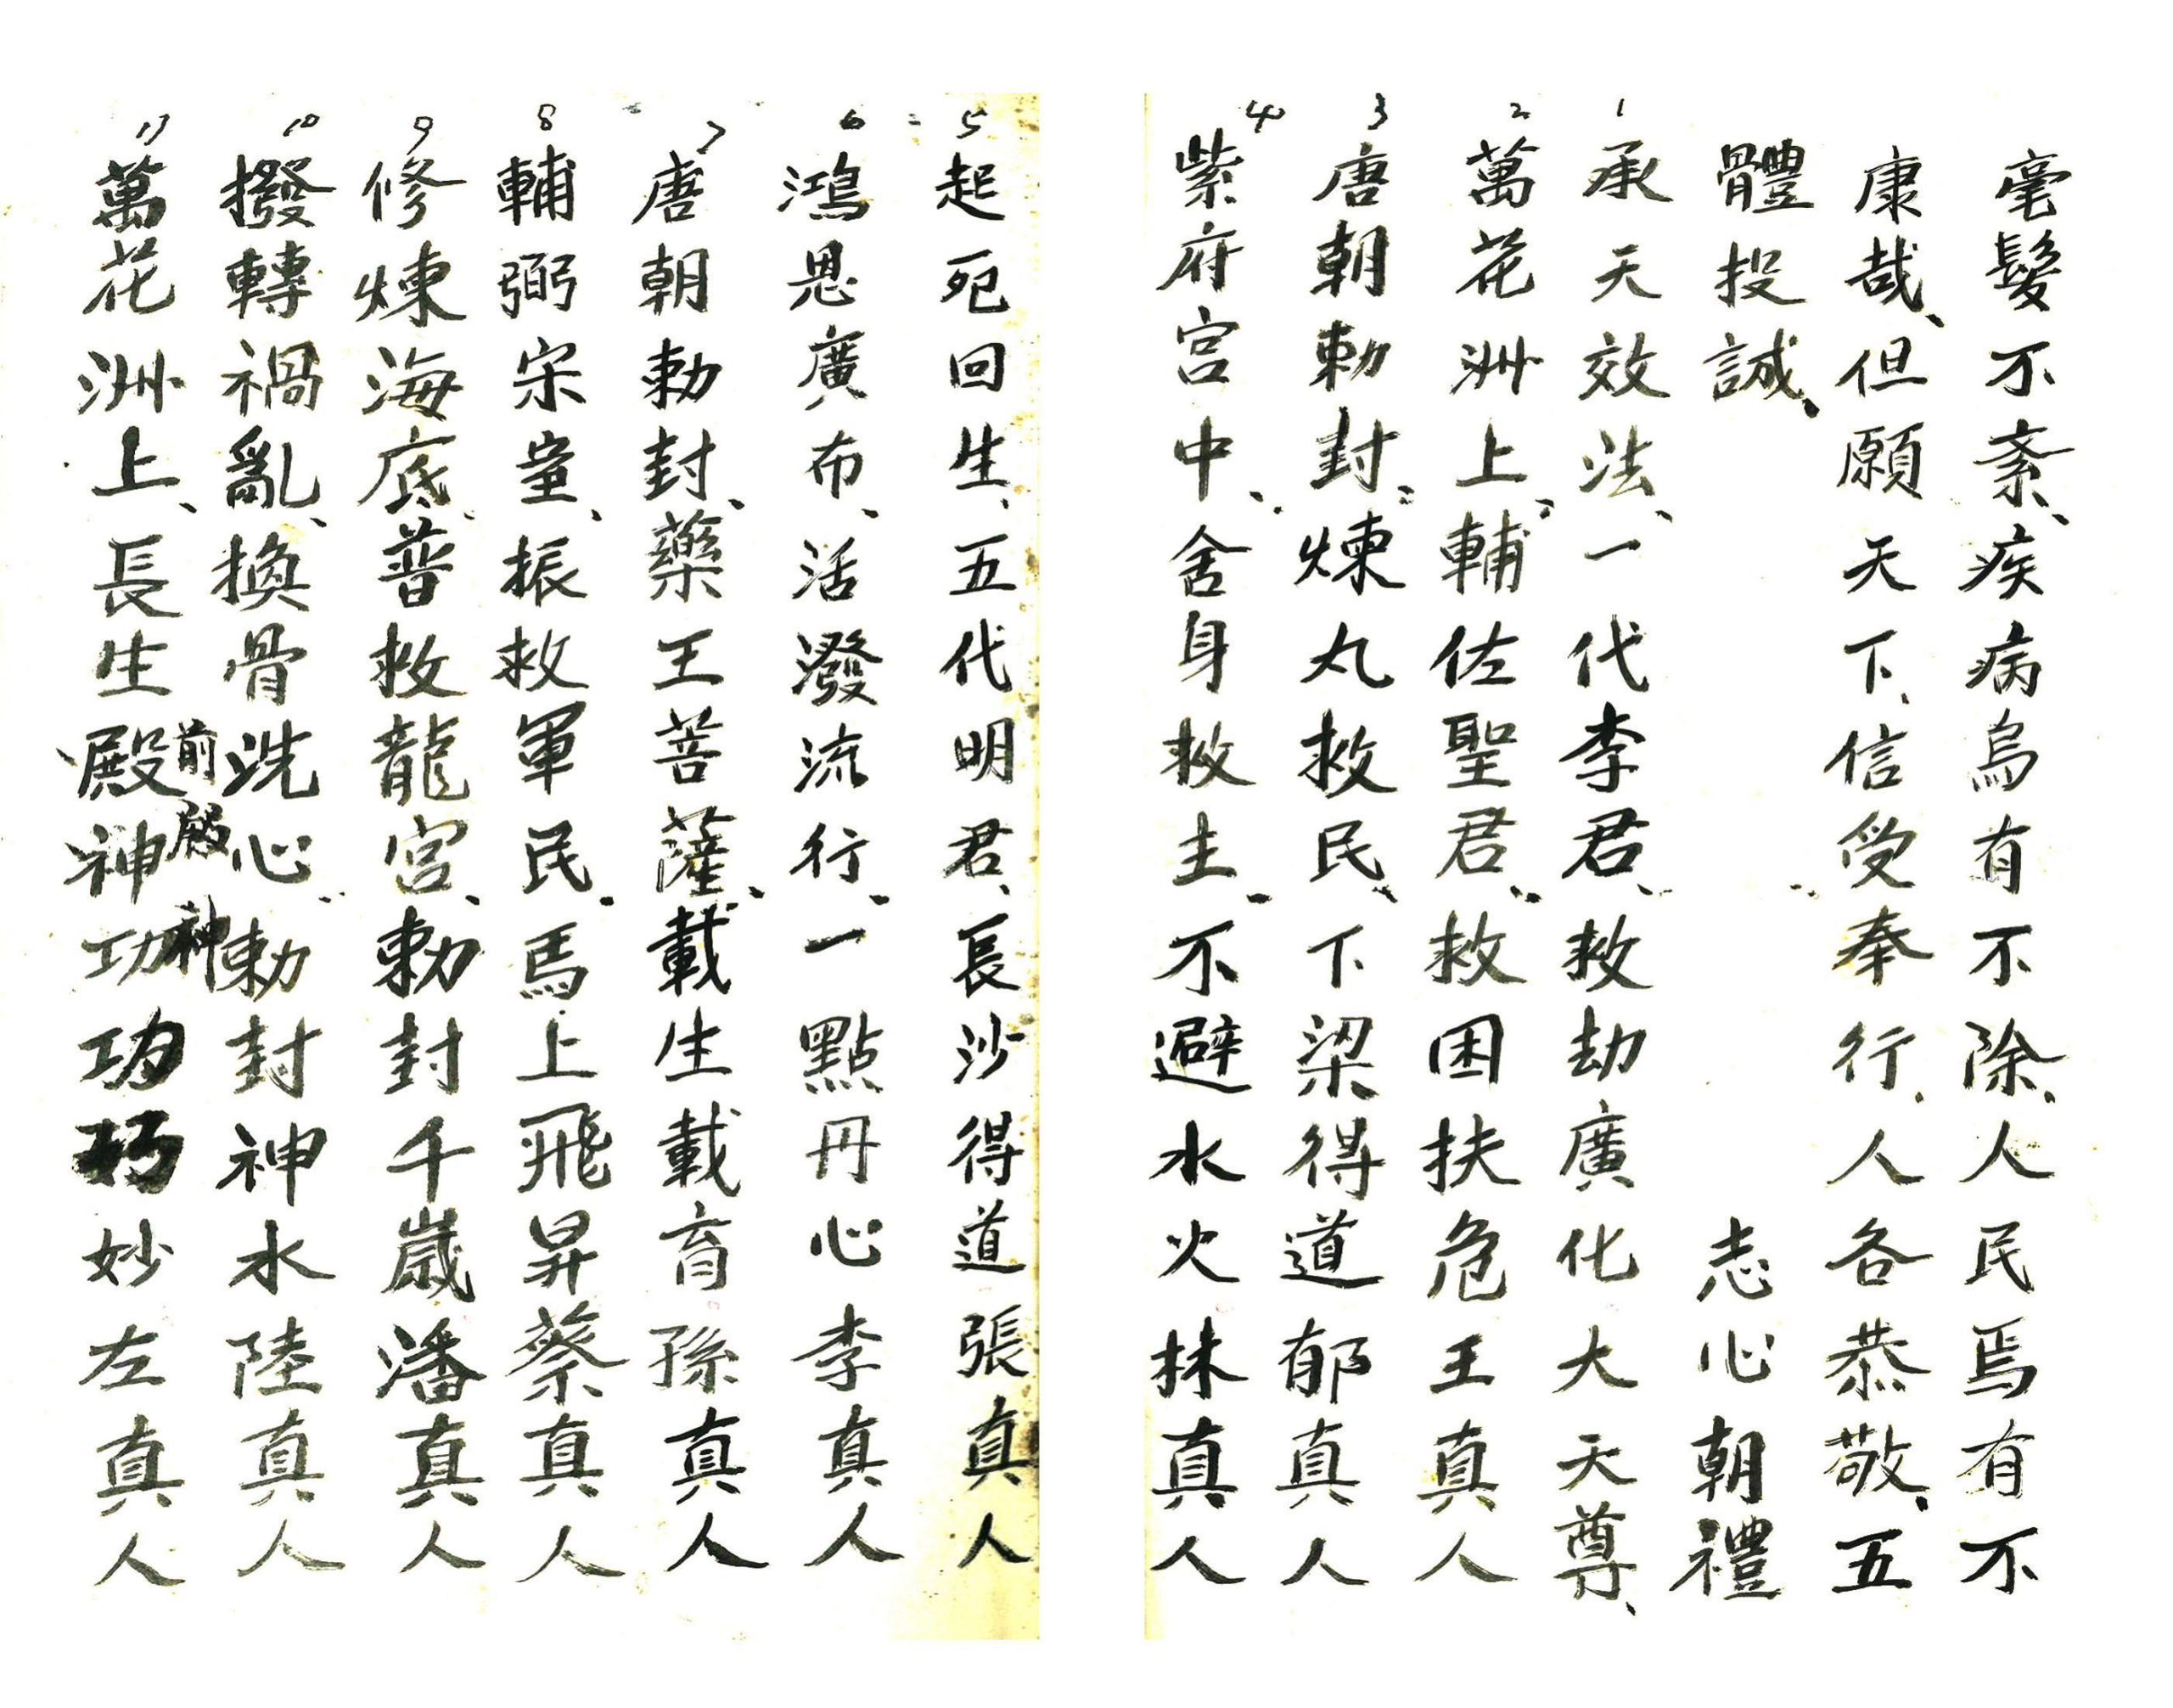 毫髮不紊、疾病烏有不除、人民焉有不
康哉、但願天下、信受奉行、人各恭敬、五
體投誠、志心朝禮
1 承天效法、一代李君、救劫廣化大天尊、
2 萬花洲上、輔佐聖君、救困扶危王真人
3 唐朝勅封、煉丸救民、下梁得道郁真人
4 紫府宮中、舍身救主、不避水火抹真人
5 起死回生、五代明君、長沙得道張真人
6 鴻恩廣布、活潑流行、一點丹心李真人
7 唐朝勅封、藥王菩薩、載生載育孫真人
8 輔弼宋童、振救軍民、馬上飛昇蔡真人
9 修煉海底、普救龍宮、勅封千歲潘真人
10 撥轉禍亂、換骨洗心、勅封神水陸真人
11 萬花洲上、長生殿神功功巧妙左真人
前殿神